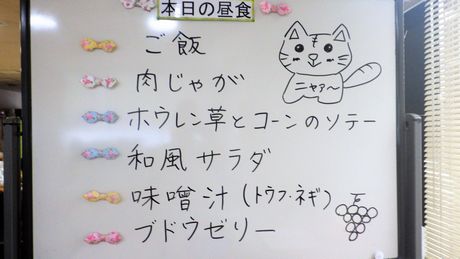 本日の昼食
ご飯
肉じゃが
ニャァ〜
ホウレン草とコーンのソテー
和風サラダ
味噌汁(トウフ・ネギ)
ブドウゼリー